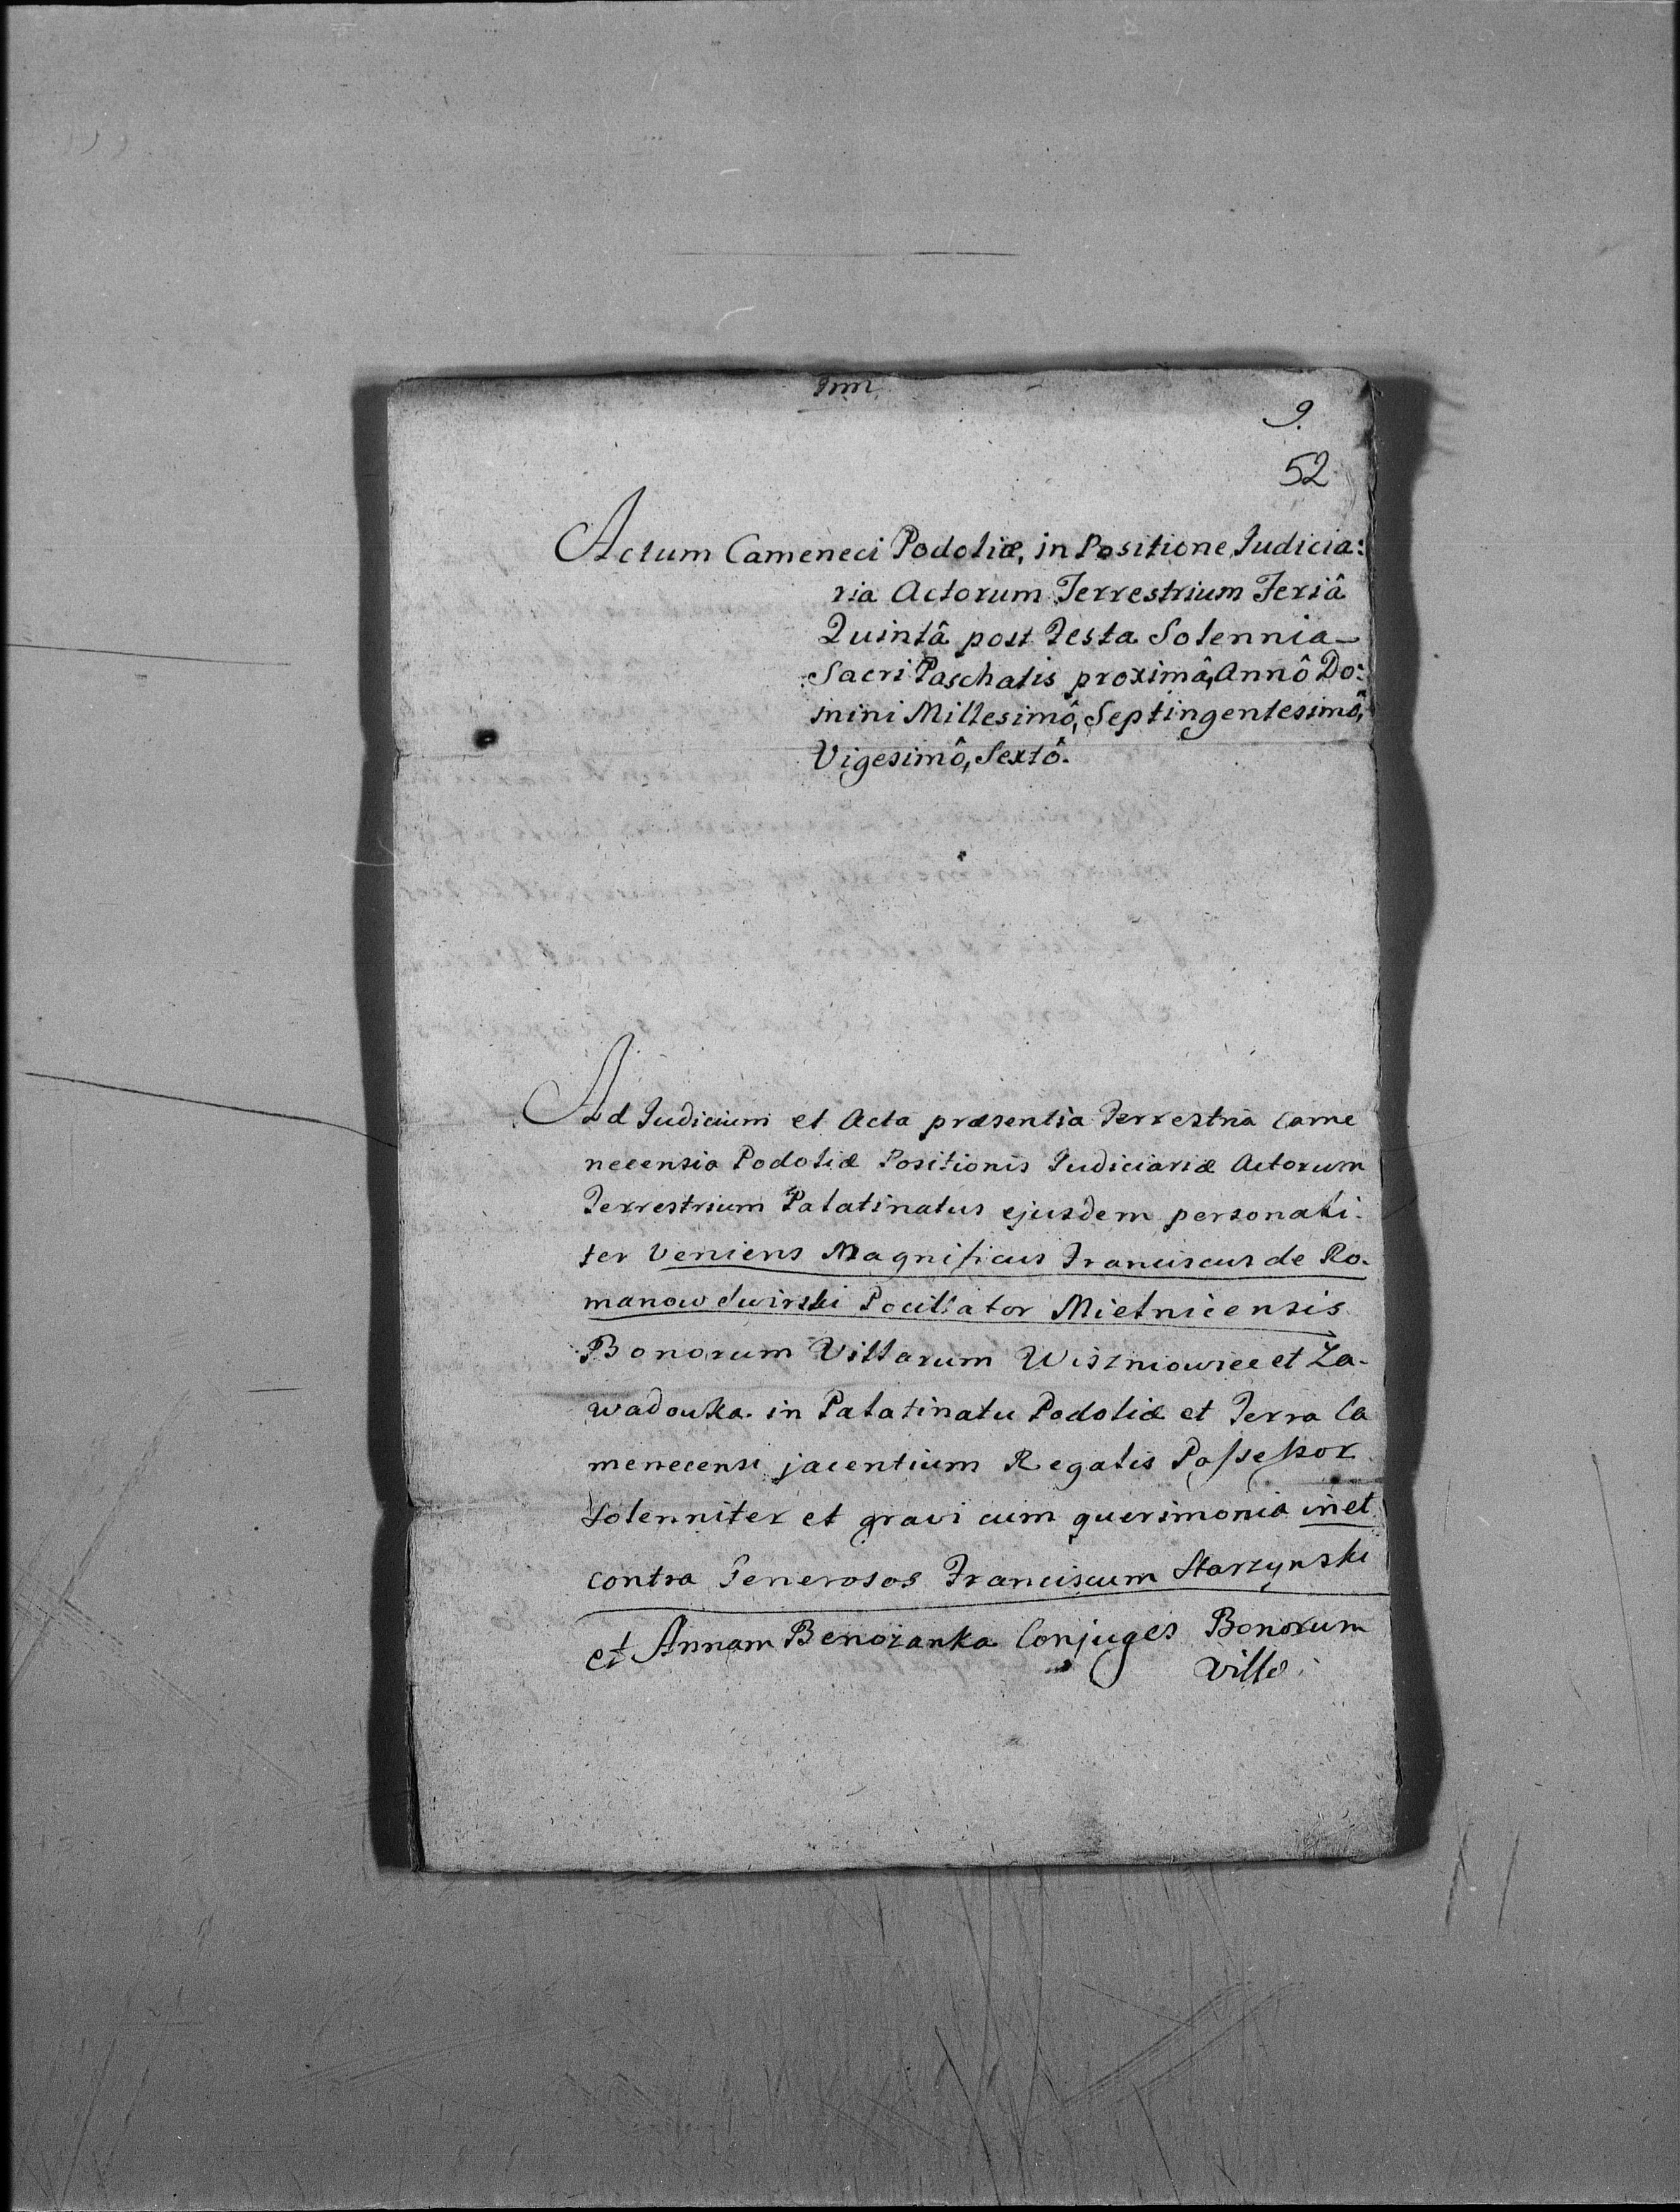 9.
52
Actum Cameneci Podoliæ, in Positione Judicia:
ria Actorum Terrestrium Feriâ
Quintâ post Festa Solennia
Sacri Paschalis proximâ, Annô Do:
mini Millesimô, Septingentesimô,
Vigesimô, Sextô.
Ad Judicium et Acta præsentia Terrestria Came
necensia Podoliæ Positionis Judiciariæ Actorum
Terrestrium Palatinatus ejusdem personali:
ter Veniens Magnificus Franciscus de Ro.
manow Swirski Pocillator Mielnicensis
Bonorum Villarum Wiszniowiec et Za-
wadowka in Palatinatu Podoliæ et Terra Ca
menecensi jacentium Regalis Possessor
Solenniter et gravi cum querimonia in et
contra Generosos Franciscum Starzynski
et Annam Benozanka Conjuges Bonorum
Villæ